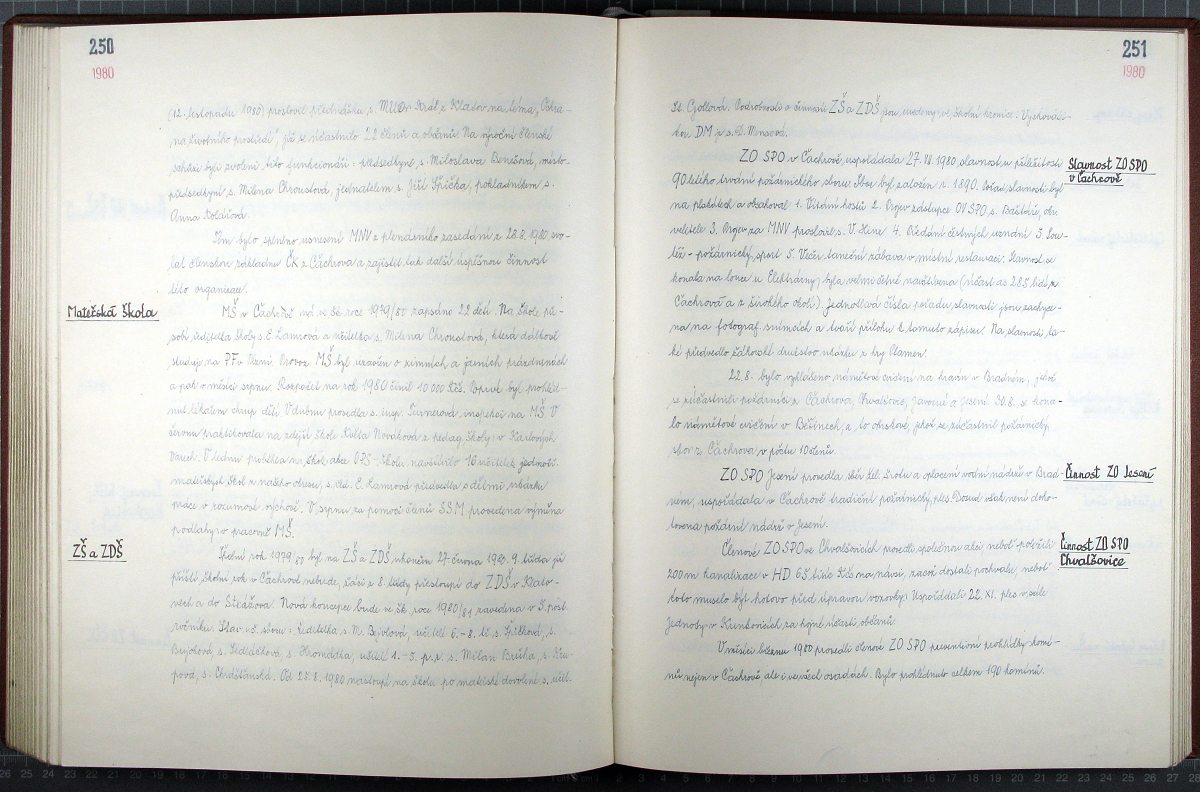 250
1980
(12. listopadu 1980) proslovil přednášku s. MUDr Král z Klatov na téma „Ochra-
na životního prostředí", jíž se účastnilo 22 členů a občanů. Na výroční členské
schůzi byli zvoleni tito funkcionáři: předsedkyně s. Miloslava Benešová, místo-
předsedkyně s. Milena Chroustová, jednatelem s. Jiří Špička, pokladníkem s.
Anna Kolářová.
Tím bylo splněno usnesení MNV z plenárního zasedání z 28.8.1980 svo-
lat členskou základnu ČK z Čachrova a zajistit tak další úspěšnou činnost
této organizace.
Mateřská škola
MŠ v Čachrově má ve šk. roce 1979/80 zapsáno 22 dětí. Na škole pů-
sobí ředitelka školy s. E. Lamrová a učitelka s. Milena Chroustová, která dálkově
studuje na PF v Plzni. Provoz MŠ byl uzavřen o zimních a jarních prázdninách
a pak v měsíci srpnu. Rozpočet na rok 1980 činil 10 000 Kčs. Poprvé byl prohléd-
nut lékařem chrup dětí. V dubnu provedla s. insp. Turnerová inspekci na MŠ. V
červnu praktikovala na zdejší škole Květa Nováková z pedag. školy v Karlových
Varech. V lednu proběhla na škole akce OPS - školu navštívilo 16 učitelek jednotř.
mateřských škol z našeho okresu, s. řed. E. Lamrová předvedla s dětmi ukázku
práce v rozumové výchově. V srpnu za pomoci členů SSM provedena výměna
podlahy v pracovně MŠ.
ZŠ a ZDŠ
Školní rok 1979/80 byl na ZŠ a ZDŠ ukončen 27. června 1980. 9. třída již
příští školní rok v Čachrově nebude, žáci z 8. třídy přestoupí do ZDŠ v Klato-
vech a do Strážova. Nová koncepce bude ve šk. roce 1980/81 zavedena v 5. post.
ročníku. Stav uč. sboru: ředitelka s. M. Bejvlová, učitelé 6.-8. tř. s. Špičková, s.
s. Sedláčková, s. Hromádka, učitelé 1.-5. p.r. s. Milan Brůha, s. Kru-
pová, s. Chrášťanská. Od 25.8.1980 nastoupí na školu po mateřské dovolené s. učit.
251
1980
St. Gollová. Podrobnosti o činnosti ZŠ a ZDŠ jsou uvedeny ve školní kronice. Vychovatel-
kou DM je s. D. Mensová.
Slavnost ZO SPO
v Čachrově
ZO SPO v Čachrově uspořádala 27. VII. 1980 slavnost u příležitosti
90letého trvání požárnického sboru. Sbor byl založen r. 1890. Pořad slavnosti byl
na plakátech a obsahoval 1. Vítání hostů 2. Projev zástupce OV SPO s. Baštáře, okr.
velitele 3. Projev za MNV proslovil s. V. Hive 4. Předání čestných uznání 5. Sou-
těž - požárnický sport 5. Večer taneční zábava v místní restauraci. Slavnost se
konala na louce u Elektrárny, byla velmi četně navštívena (účast as 285 lidí z
Čachrova a z širokého okolí). Jednotlivá čísla pořadu slavnosti jsou zachyce-
na na fotograf. snímcích a tvoří přílohu k tomuto zápisu. Na slavnosti ta-
ké předvedlo žákovské družstvo ukázku z hry Plamen.
22.8. bylo vyhlášeno námětové cvičení na kravín v Bradném, jehož
se zúčastnili požárníci z Čachrova, Chvalšovic, Javorné a Jesení. 30.8. se kona-
lo námětové cvičení v Běšinech, a to okrskové, jehož se zúčastnil požárnický
sbor z Čachrova v počtu 10 členů.
Činnost ZO Jesení
ZO SPO Jesení provedla sběr žel. šrotu a oplocení vodní nádrže v Brad-
ném, uspořádala v Čachrově tradiční požárnický ples. Dosud však není doho-
tovena požární nádrž v Jesení.
Činnost ZO SPO
Chvalšovice
Členové ZO SPO ve Chvalšovicích provedli společnou akci neboť položili
200 m kanalizace v HD 65 tisíc Kčs na návsi, zač dostali pochvalu, neboť
toto muselo být hotovo před úpravou vozovky. Uspořádali 22. XI. ples v sále
Jednoty v Kunkovicích za hojné účasti občanů.
V měsíci březnu 1980 provedli členové ZO SPO preventivní prohlídky komí-
nů nejen v Čachrově ale i ve všech osadách. Bylo prohlédnuto celkem 190 komínů.